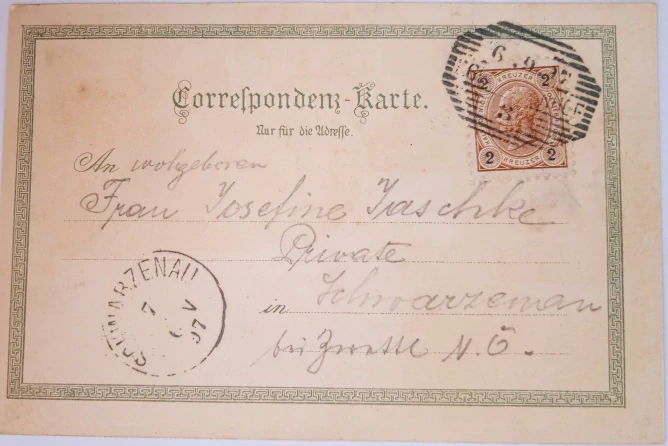 Correspondenz-Karte.
Nur für die Adresse.
2 KREUZER 2
2 KREUZER 2
An wohgeboren
Frau Josefine Jraschke
Private
in Schwarzenau
bei Zwettl N. Ö.
SCHWARZENAU
7
6 V
97